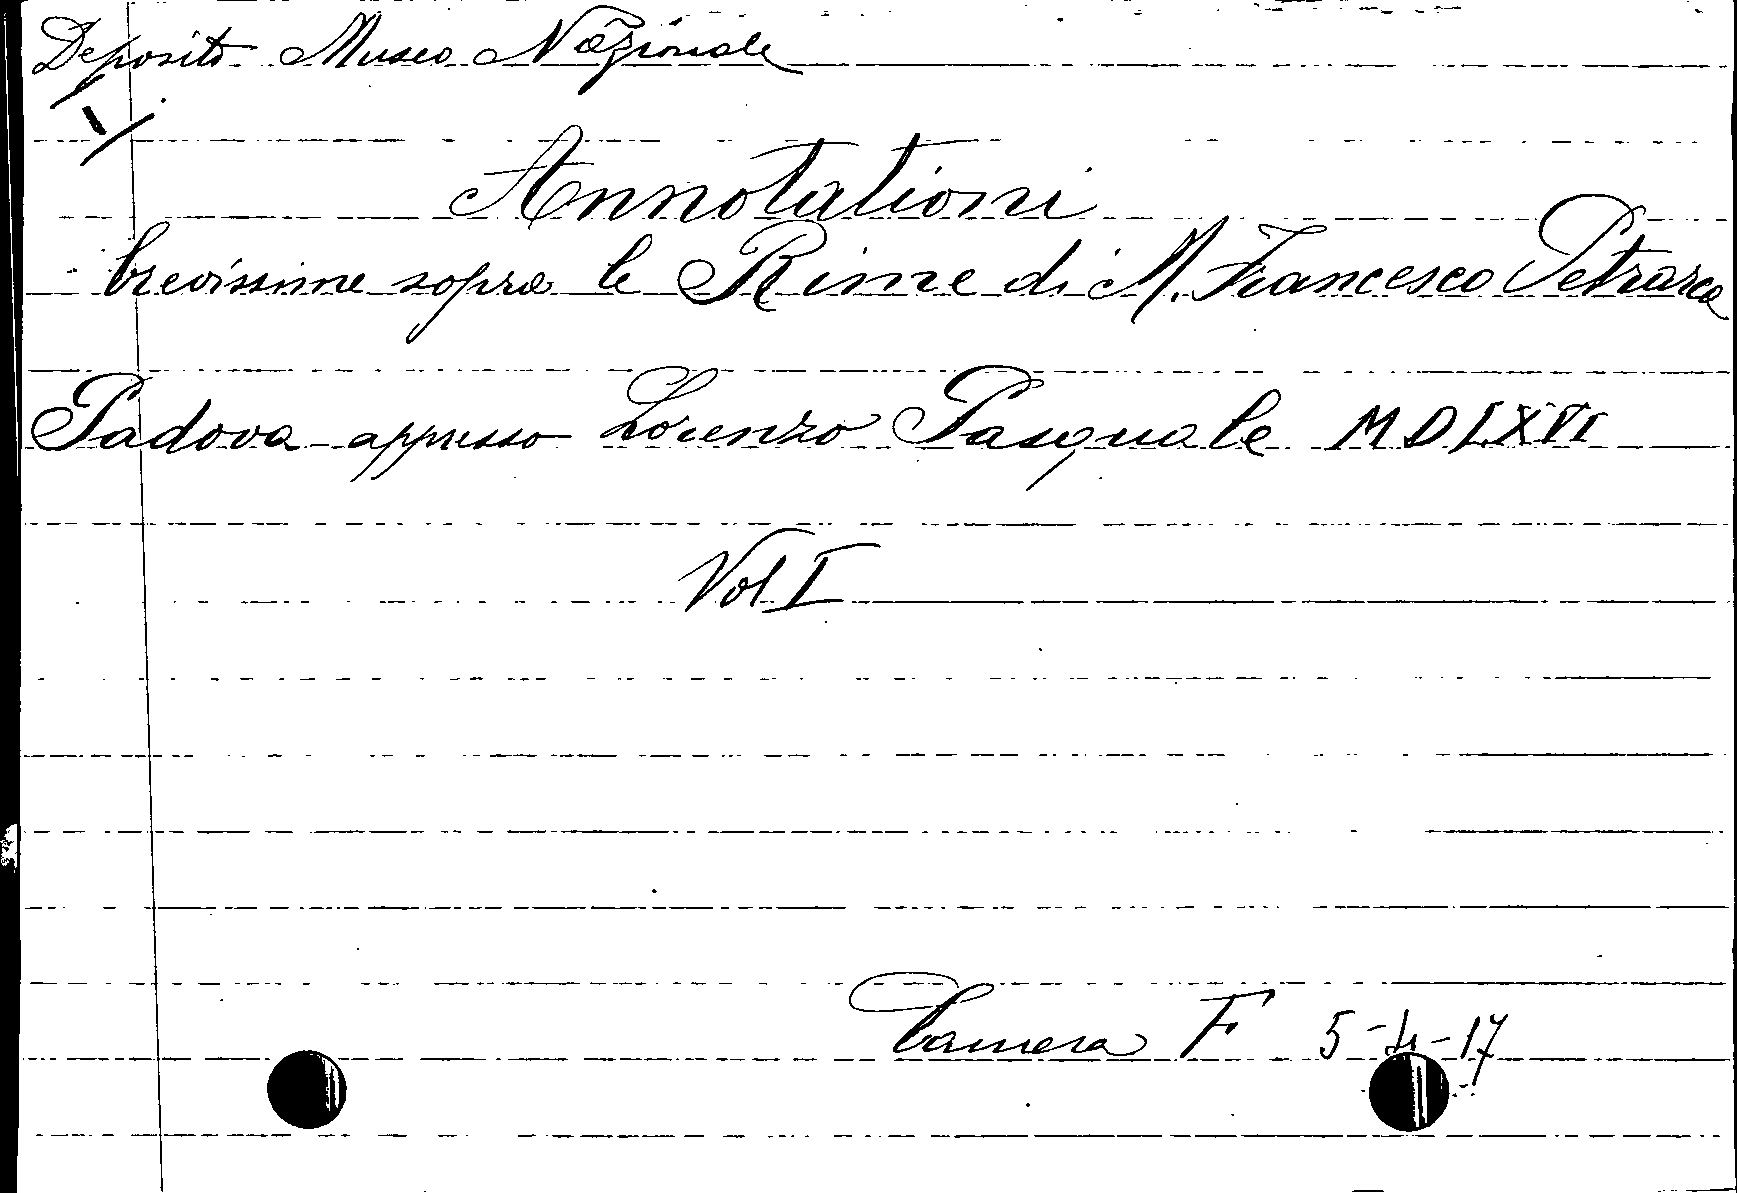 Deposito Museo Nazionale
Annotationi
brevissime sopra le Rime di M. Francesco Petrarca
Padova appresso Lorenzo Pasquale MDLXVI
Vol I
Camera F 5-4-17